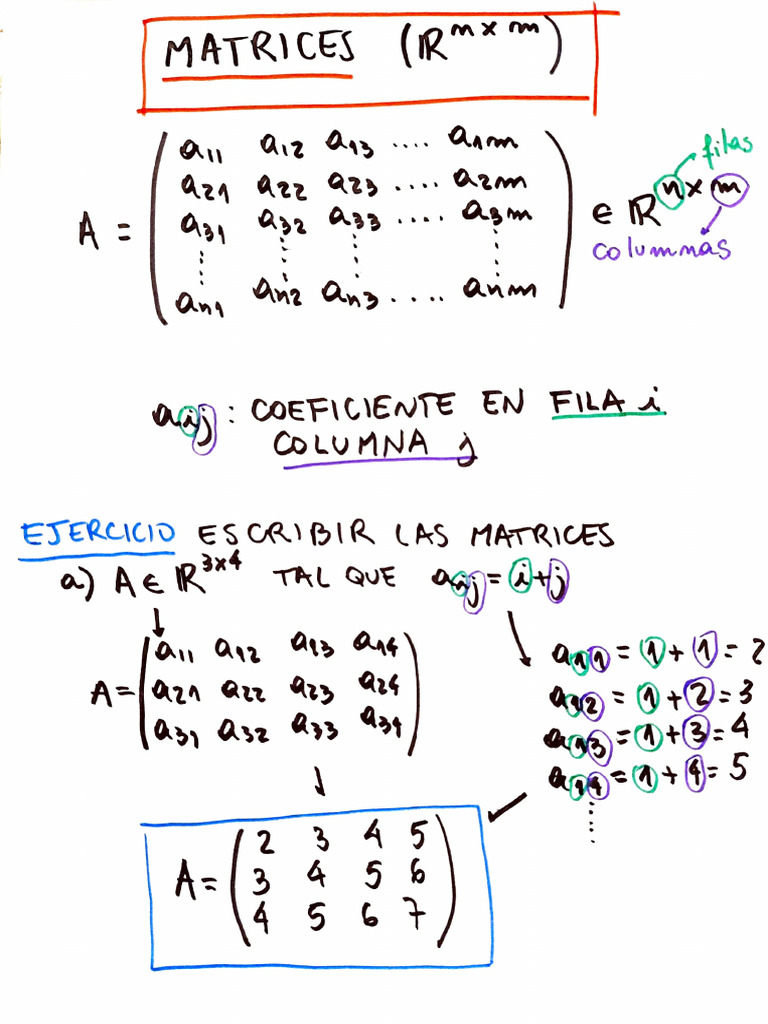 MATRICES (ℝⁿˣᵐ)
A = ( a₁₁ a₁₂ a₁₃ .... a₁ₘ
a₂₁ a₂₂ a₂₃ .... a₂ₘ
a₃₁ a₃₂ a₃₃ .... a₃ₘ
⋮ ⋮ ⋮ ⋮
aₙ₁ aₙ₂ aₙ₃ .... aₙₘ ) ∈ ℝⁿˣᵐ
filas
columnas
aᵢⱼ : COEFICIENTE EN FILA i
COLUMNA j
EJERCICIO ESCRIBIR LAS MATRICES
a) A ∈ ℝ³ˣ⁴ TAL QUE aᵢⱼ = i + j
A = ( a₁₁ a₁₂ a₁₃ a₁₄
a₂₁ a₂₂ a₂₃ a₂₄
a₃₁ a₃₂ a₃₃ a₃₄ )
a₁₁ = 1 + 1 = 2
a₁₂ = 1 + 2 = 3
a₁₃ = 1 + 3 = 4
a₁₄ = 1 + 4 = 5
⋮
A = ( 2 3 4 5
3 4 5 6
4 5 6 7 )